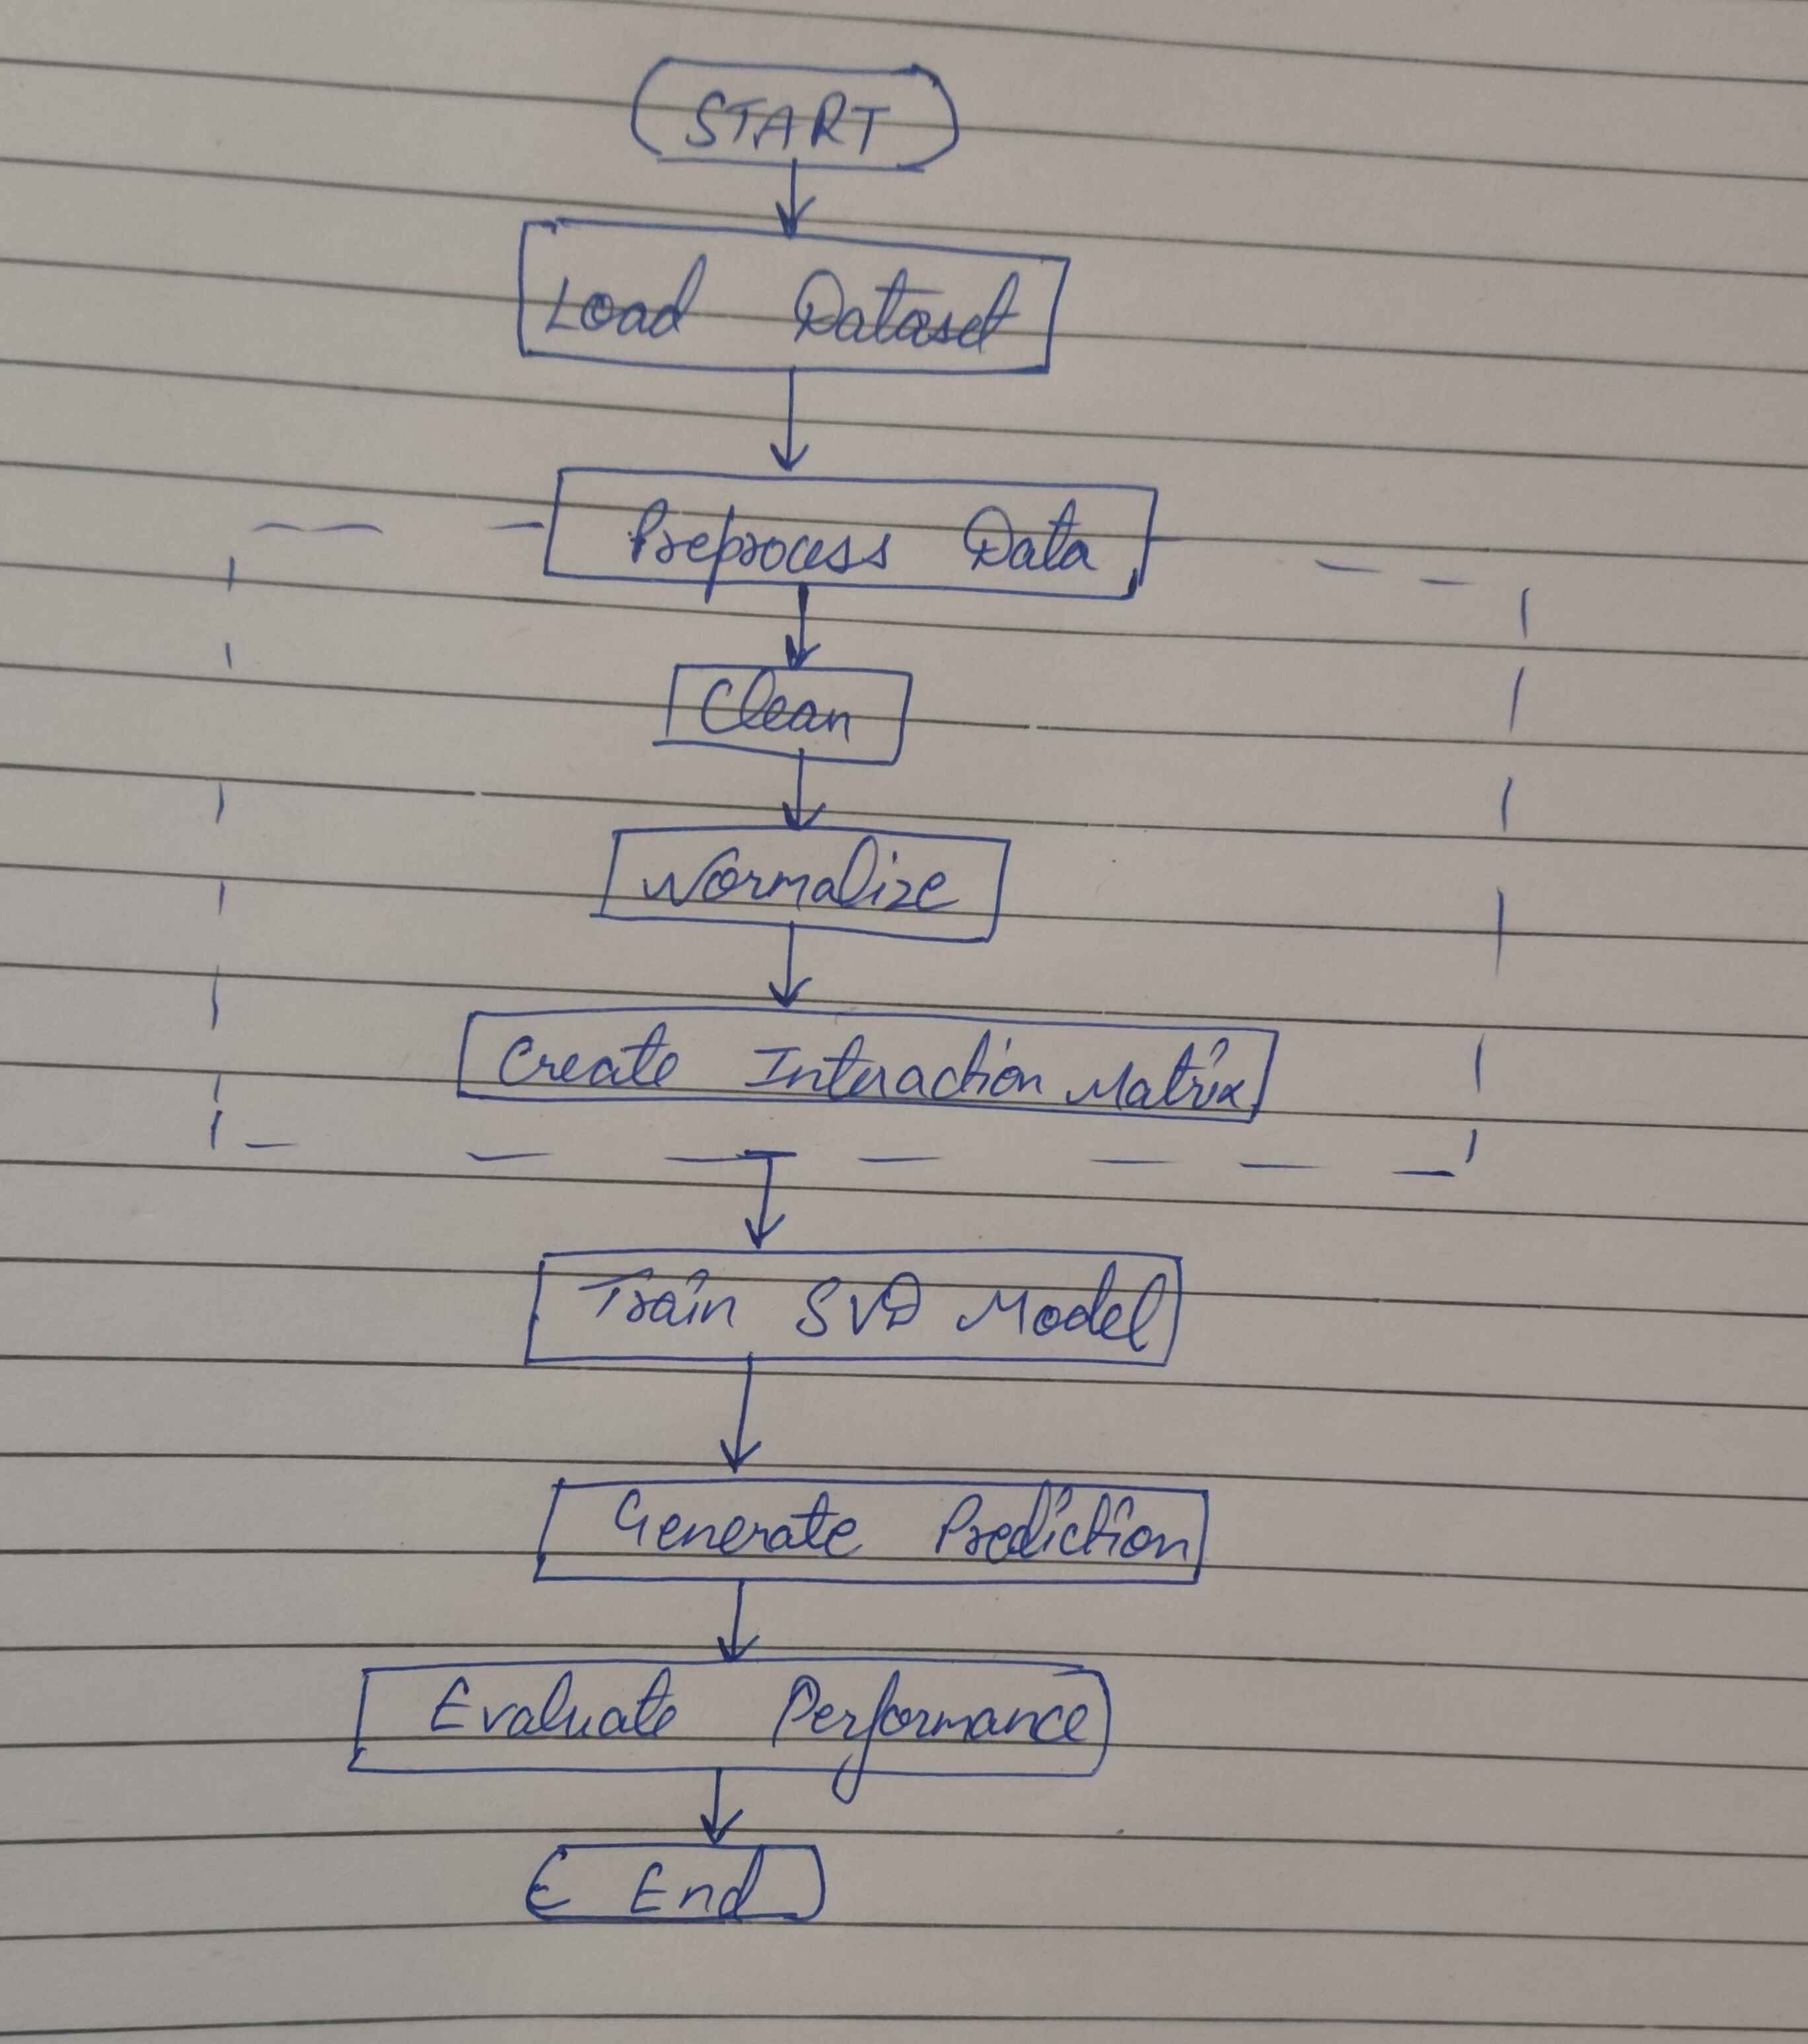 START
Load Dataset
Preprocess Data
Clean
Normalize
Create Interaction Matrix
Train SVD Model
Generate Prediction
Evaluate Performance
End